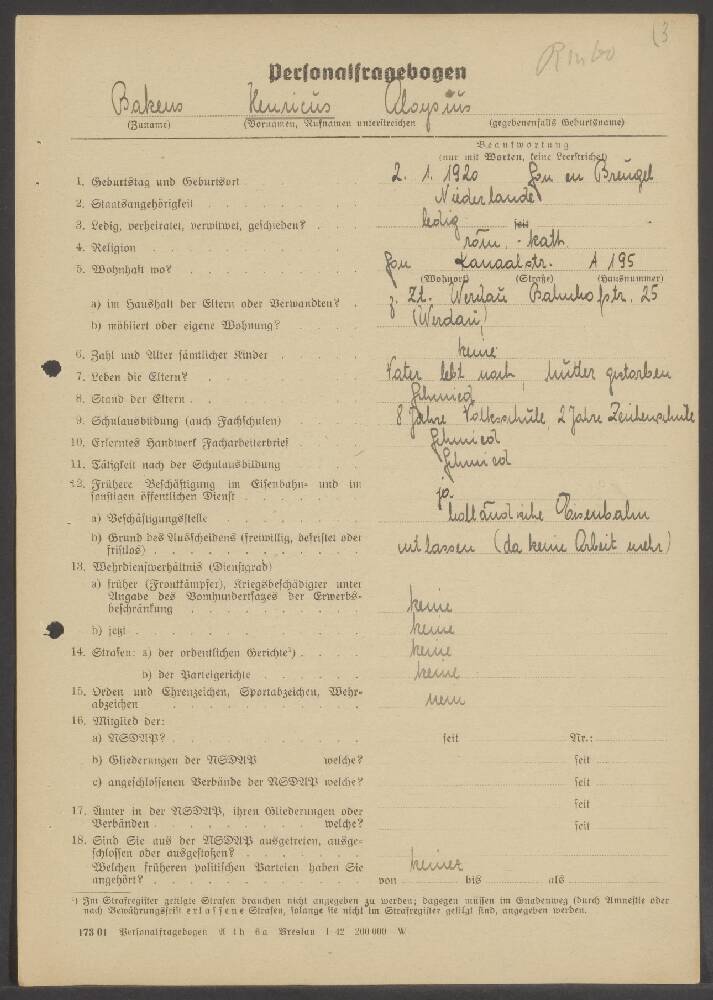 (3
Personalfragebogen
Bakens Henricus Aloysius
(Zuname) (Vornamen, Rufnamen unterstreichen (gegebenenfalls Geburtsname)
Beantwortung
(nur mit Worten, keine Leerstriche)
1. Geburtstag und Geburtsort 2. 1. 1920 Son en Breugel
2. Staatsangehörigkeit Niederlande
3. Ledig, verheiratet, verwitwet, geschieden? ledig seit
4. Religion röm. - kath.
5. Wohnhaft wo? Son Kanaalstr. A 195
(Wohnort) (Straße) (Hausnummer)
a) im Haushalt der Eltern oder Verwandten? z. Zt. Werdau Bahnhofstr. 25
b) möbliert oder eigene Wohnung? (Werdau)
6. Zahl und Alter sämtlicher Kinder keine
7. Leben die Eltern? Vater lebt noch, Mutter gestorben
8. Stand der Eltern Schmied
9. Schulausbildung (auch Fachschulen) 8 Jahre Volksschule, 2 Jahre Zeichenschule
10. Erlerntes Handwerk Facharbeiterbrief Schmied
11. Tätigkeit nach der Schulausbildung Schmied
12. Frühere Beschäftigung im Eisenbahn- und im
sonstigen öffentlichen Dienst ja
a) Beschäftigungsstelle holländische Eisenbahn
b) Grund des Ausscheidens (freiwillig, befristet oder
fristlos) entlassen (da keine Arbeit mehr)
13. Wehrdienstverhältnis (Dienstgrad)
a) früher (Frontkämpfer), Kriegsbeschädigter unter
Angabe des Vomhundertsatzes der Erwerbs-
beschränkung keine
b) jetzt keine
14. Strafen: a) der ordentlichen Gerichte¹) keine
b) der Parteigerichte keine
15. Orden und Ehrenzeichen, Sportabzeichen, Wehr-
abzeichen nein
16. Mitglied der:
a) NSDAP? seit Nr.:
b) Gliederungen der NSDAP welche? seit
c) angeschlossenen Verbände der NSDAP welche? seit
seit
17. Ämter in der NSDAP, ihren Gliederungen oder
Verbänden welche? seit
18. Sind Sie aus der NSDAP ausgetreten, ausge-
schlossen oder ausgestoßen?
Welchen früheren politischen Parteien haben Sie keiner
angehört? von bis als
¹) Im Strafregister getilgte Strafen brauchen nicht angegeben zu werden; dagegen müssen im Gnadenweg (durch Amnestie oder
nach Bewährungsfrist erlassene Strafen, solange sie nicht im Strafregister getilgt sind, angegeben werden.
173 01 Personalfragebogen A 4 h 6a Breslau I 42 200 000 W